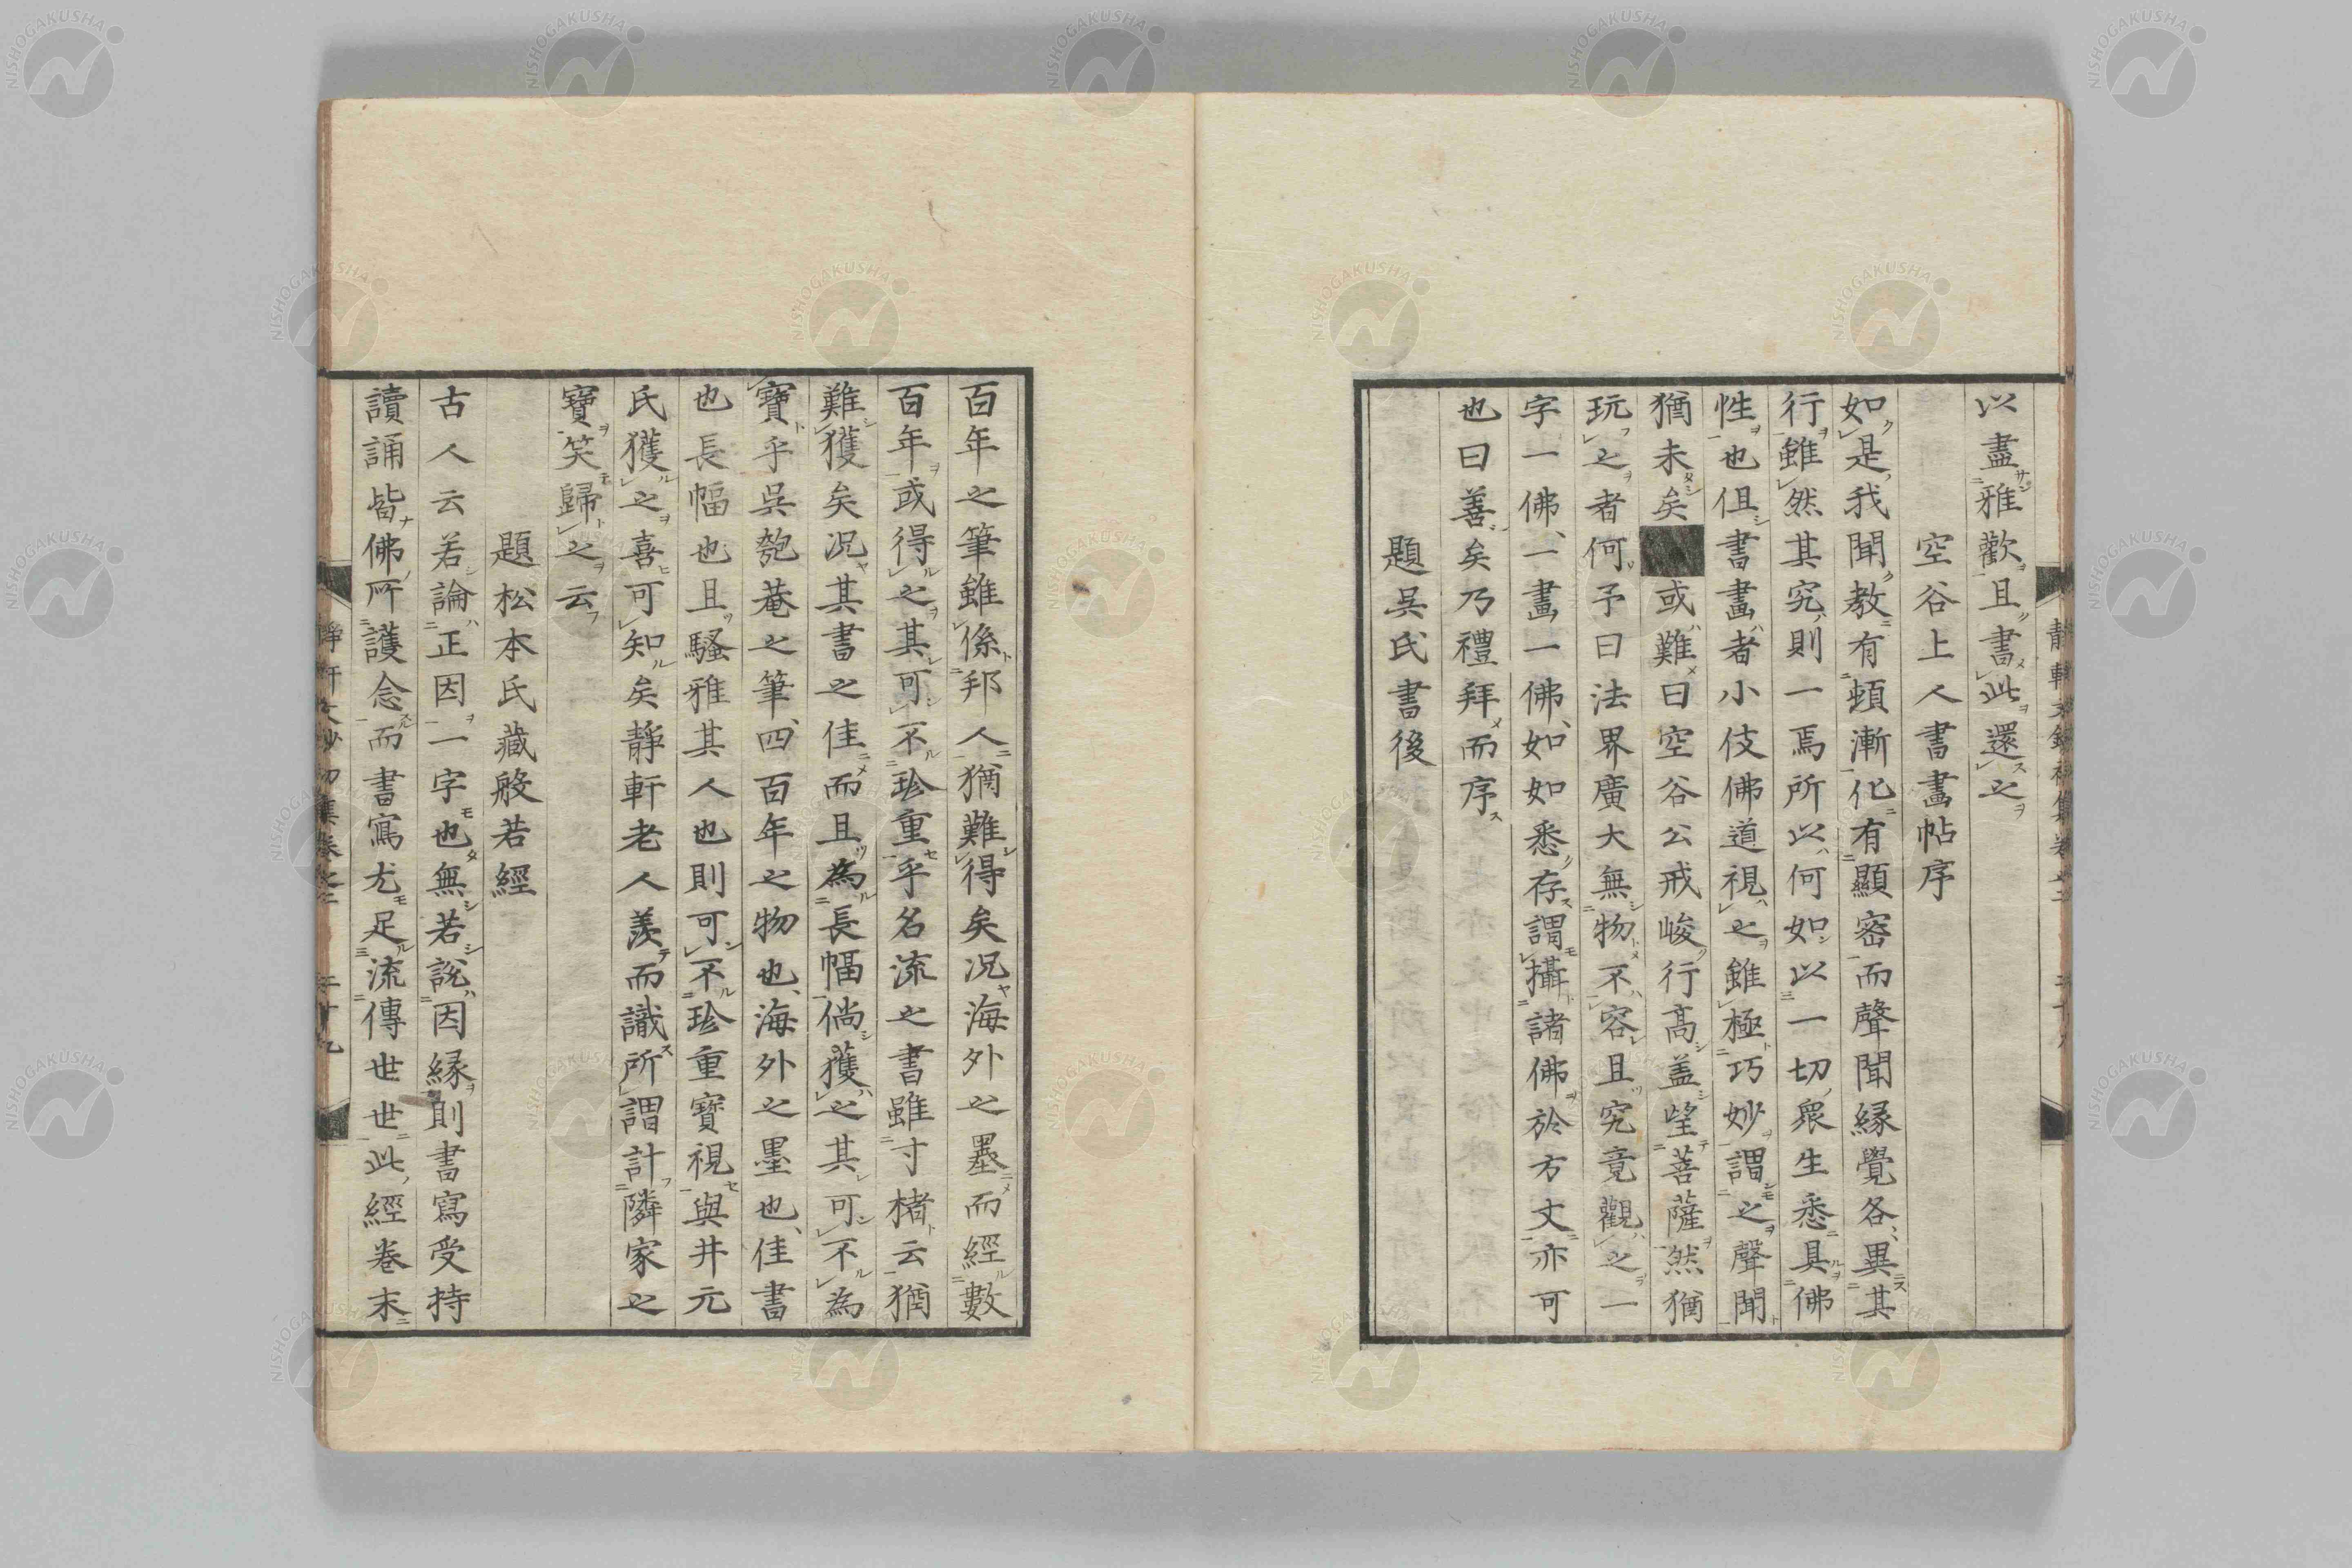 以盡雅歡且書此還之
空谷上人書畫帖序
如是我聞教有頓漸化有顯密而聲聞緣覺各異其
行雖然其究則一焉所以何如以一切衆生悉具佛
性也但書畫者小伎佛道視之雖極巧妙謂之聲聞
猶未矣■或難曰空谷公戒峻行高盖望菩薩然猶
玩之者何予曰法界廣大無物不容且究竟觀之一
字一佛一畫一佛如如悉存謂攝諸佛於方丈亦可
也曰善矣乃禮拜而序
題吳氏書後
百年之筆雖係邦人猶難得矣况海外之墨而經數
百年或得之其可不珍重乎名流之書雖寸楮云猶
難獲矣况其書之佳而且為長幅倘獲之其可不為
寶乎吳匏菴之筆四百年之物也海外之墨也佳書
也長幅也且騷雅其人也則可不珍重寶視與井元
氏獲之喜可知矣靜軒老人羨而識所謂計隣家之
寶笑歸之云
題松本氏藏般若經
古人云若論正因一字也無若說因緣則書寫受持
讀誦皆佛所護念而書寫尤足流傳世世此經卷末
NISHOGAKUSHA